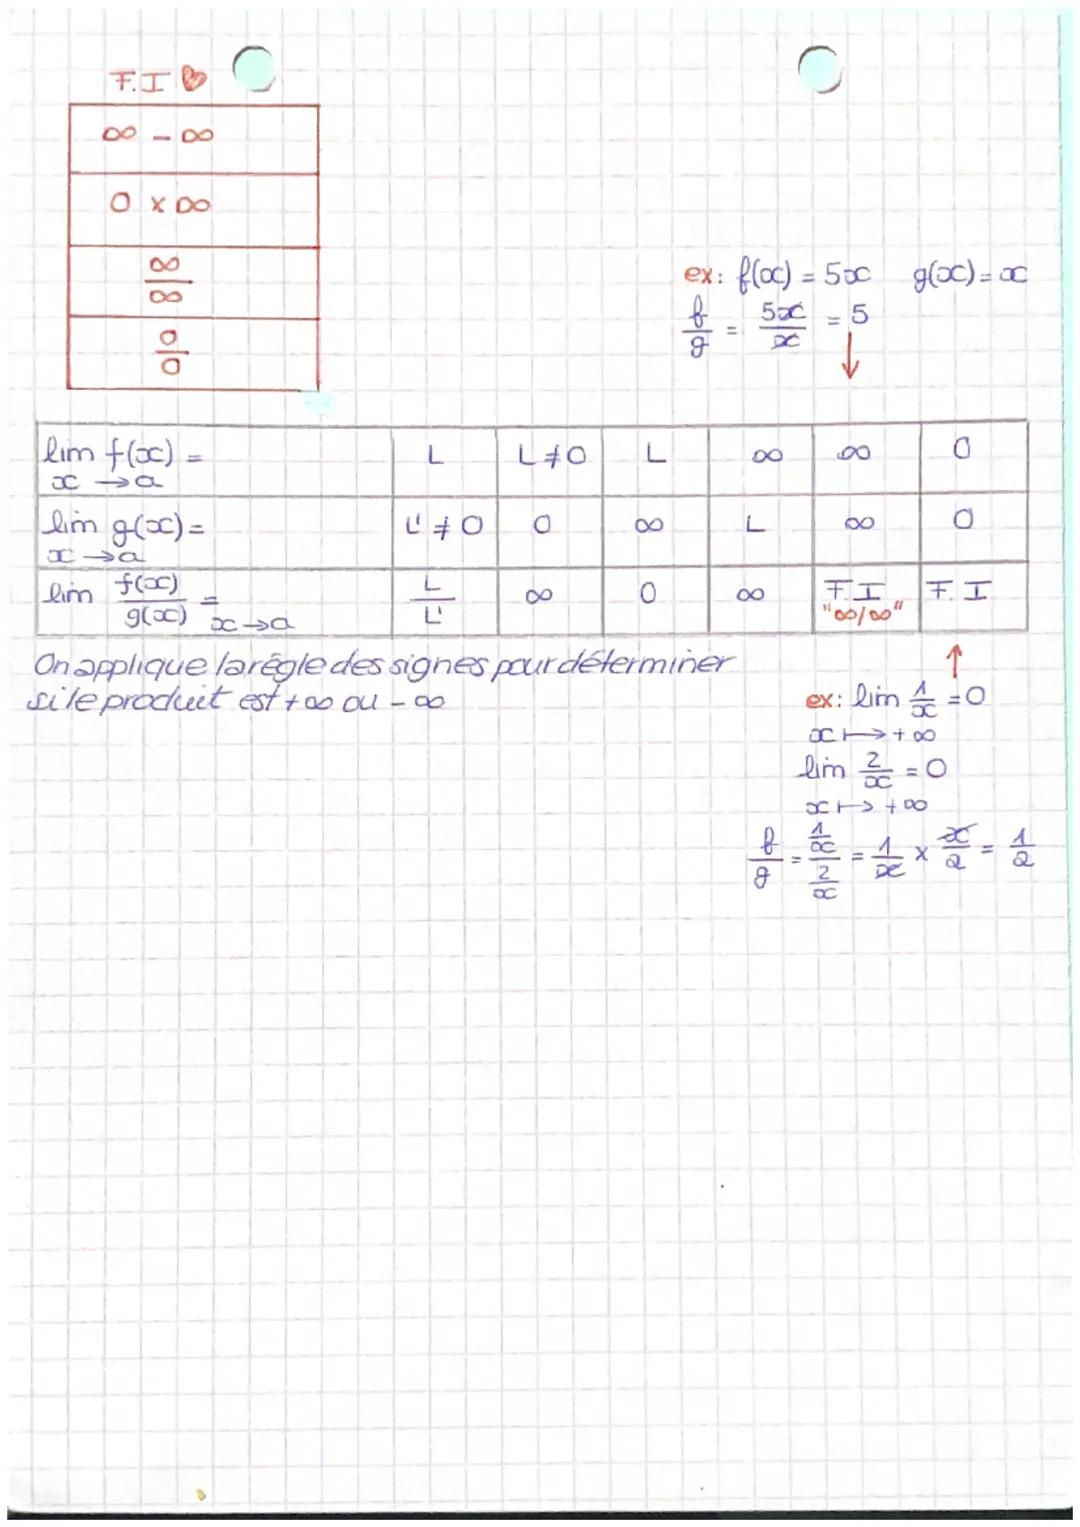 F.I ♡
∞ - ∞
0 × ∞
∞/∞
0/0
ex: f(x) = 5x g(x) = x
f/g = 5x/x = 5
↓
lim f(x) = L L≠0 L ∞ ∞ 0
x → a
lim g(x) = L' ≠ 0 0 ∞ L ∞ 0
x → a
lim f(x)/g(x) = x→a L/L' ∞ 0 ∞ F.I "∞/∞" F.I
On applique la régle des signes pour déterminer
si le produit est +∞ ou -∞
↑
ex: lim 1/x = 0
x ↦ +∞
lim 2/x = 0
x ↦ +∞
f/g = (1/x)/(2/x) = 1/x × x/2 = 1/2